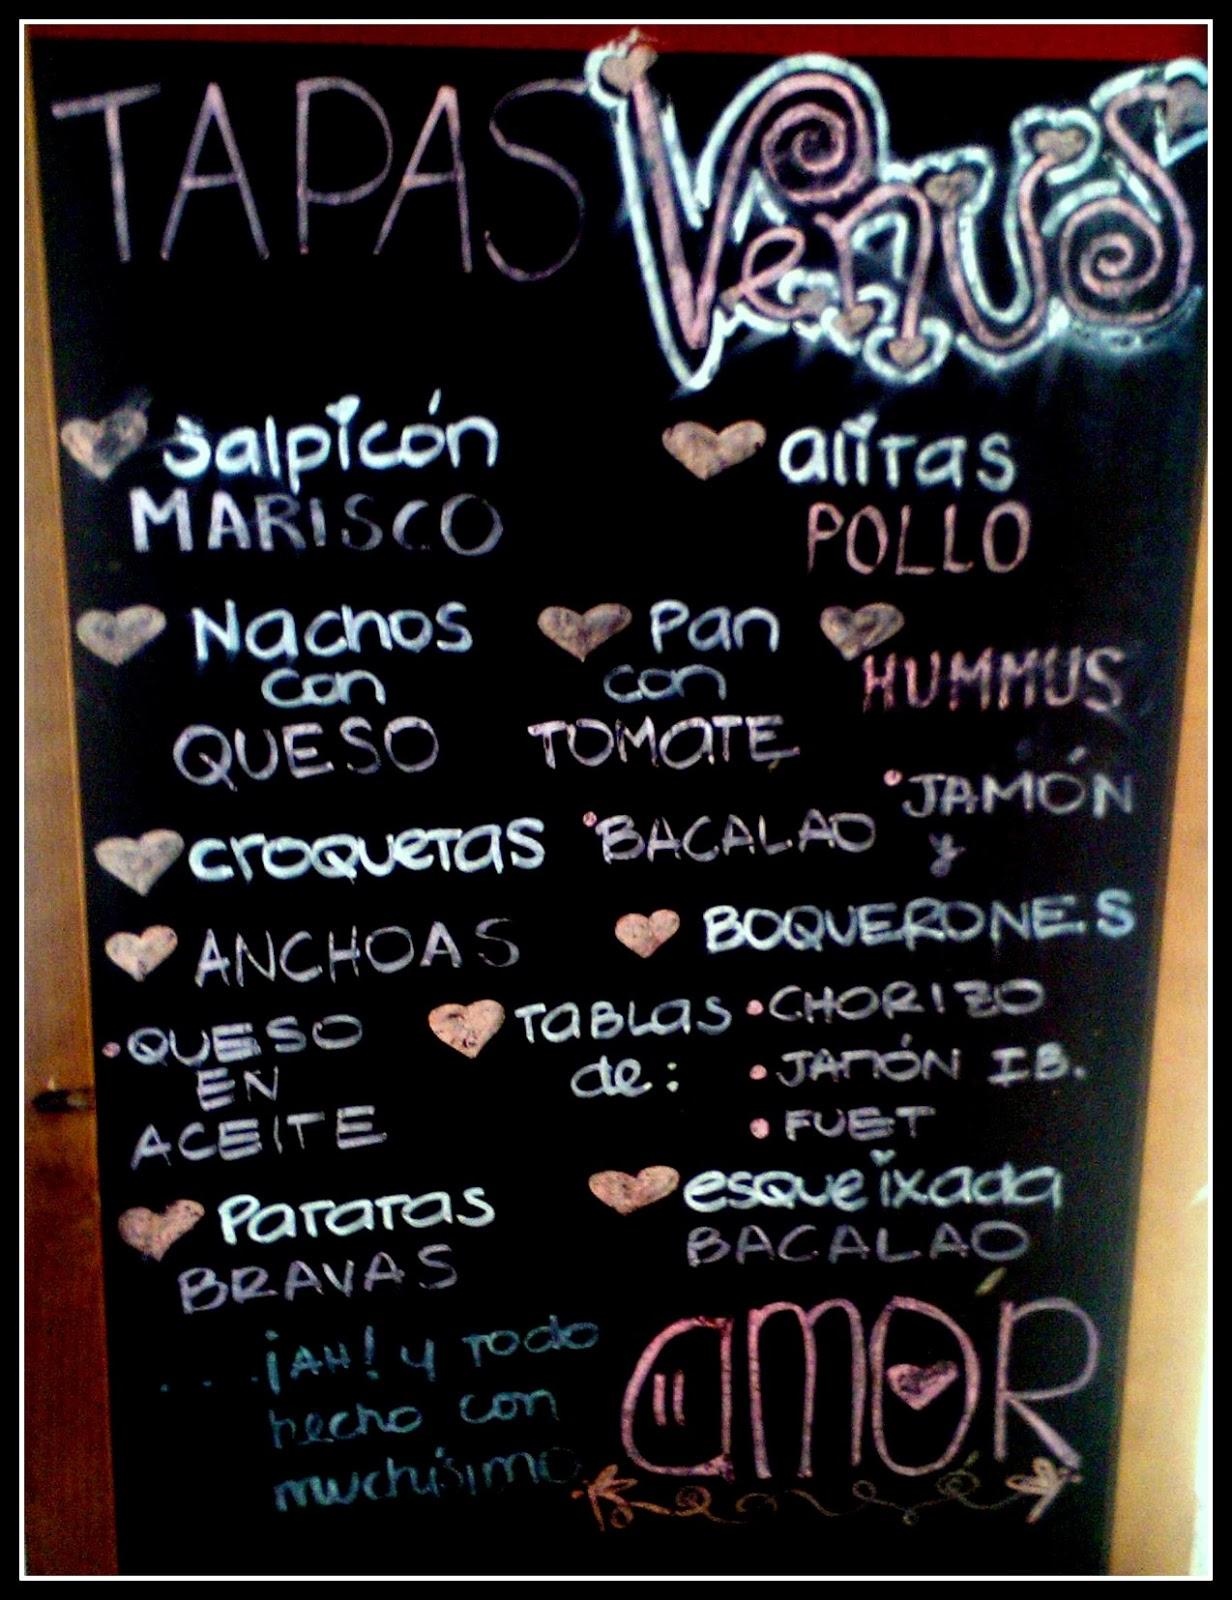 TAPAS Venus
Salpicón
MARISCO
alitas
POLLO
Nachos
con
QUESO
Pan
con
TOMATE
HUMMUS
croquetas
•BACALAO
y
•JAMÓN
ANCHOAS
BOQUERONES
•QUESO
EN
ACEITE
Tablas
de:
•CHORIZO
•JAMÓN IB.
•FUET
Patatas
BRAVAS
esqueixada
BACALAO
....¡AH! y todo
hecho con
muchísimo
AMOR